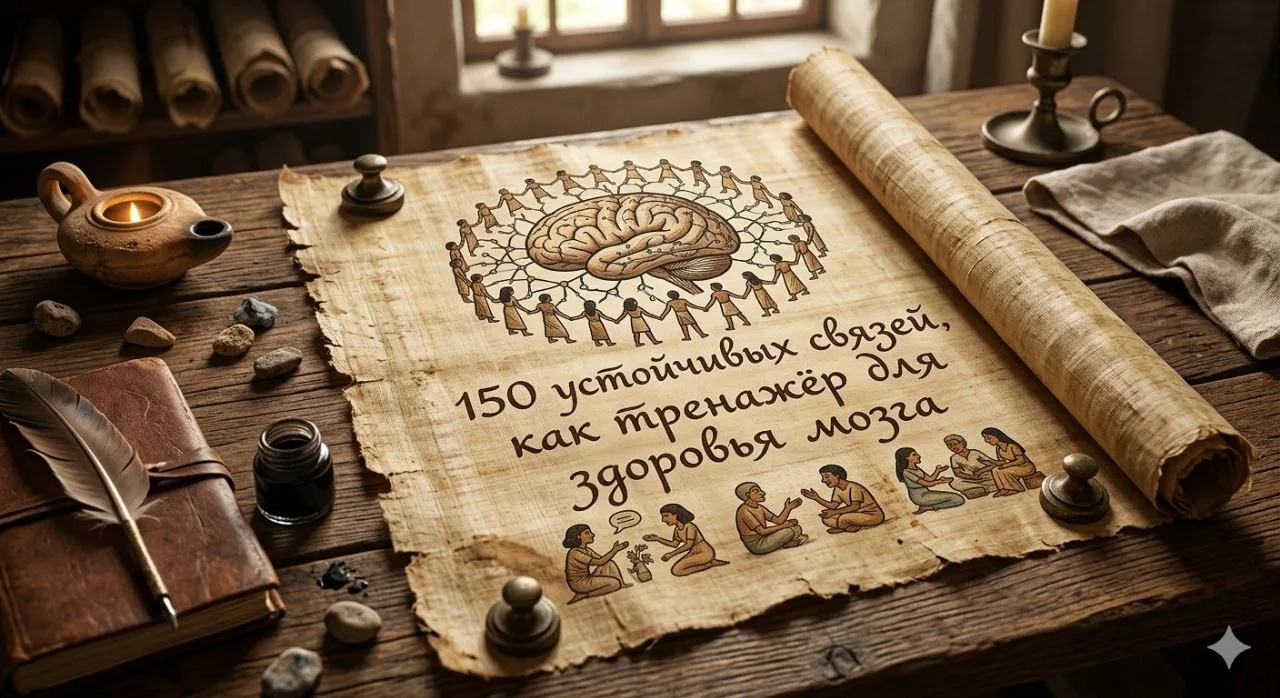 150 устойчивых связей,
как тренажёр для
здоровья мозга